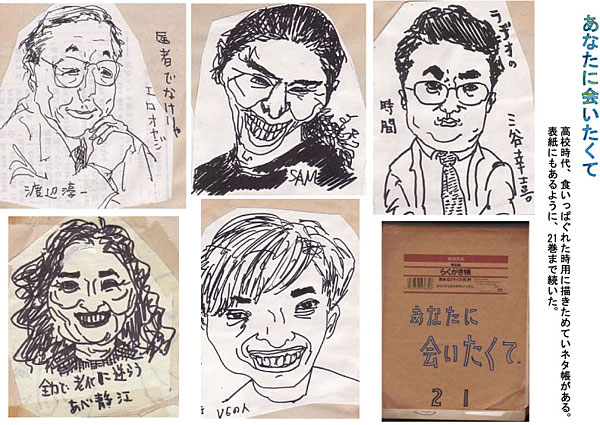 あなたに会いたくて
高校時代、食いっぱぐれた時用に描きためていネタ帳がある。
表紙にもあるように、21巻まで続いた。
医者でなけりゃ
エロオヤジ
渡辺淳一
SAM
ラヂオの
時間
三谷幸喜。
全力で老化に逆らう
あべ静江
V6の人
らくがき帳
あなたに
会いたくて。
21